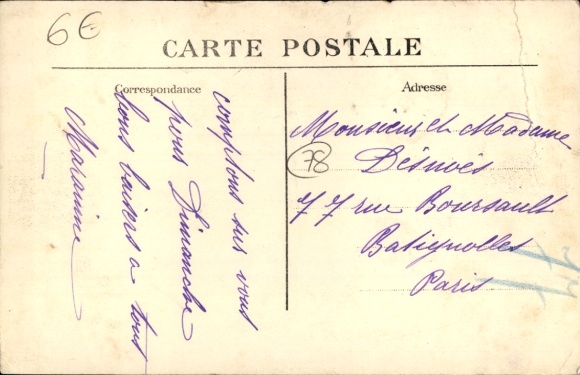 6€
CARTE POSTALE
Correspondance
Adresse
comptons sur vous
pour Dimanche
bons baisers a tous
Marraine
Monsieur et Madame
78
77 rue Boursault
Batignolles
Paris
77